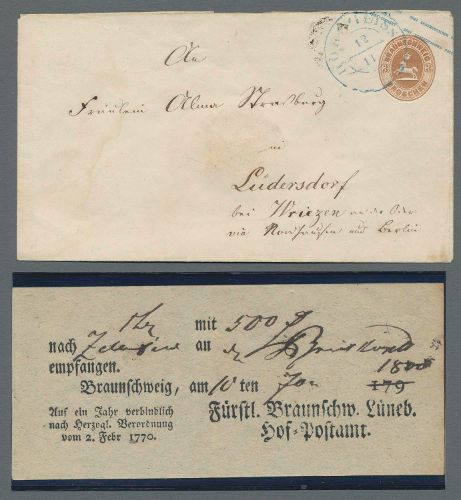 An
Fräulein Alma Straßburg
in
Lüdersdorf
bei Wriezen an der Oder
via Nordhausen und Berlin
12
11
BRAUNSCHWEIG
GROSCHEN
mit 500
nach an
empfangen. 1800
Braunschweig, am 10 ten Jan 179
Auf ein Jahr verbindlich
nach Herzogl. Verordnung
vom 2. Febr 1770.
Fürstl. Braunschw. Lüneb.
Hof-Postamt.